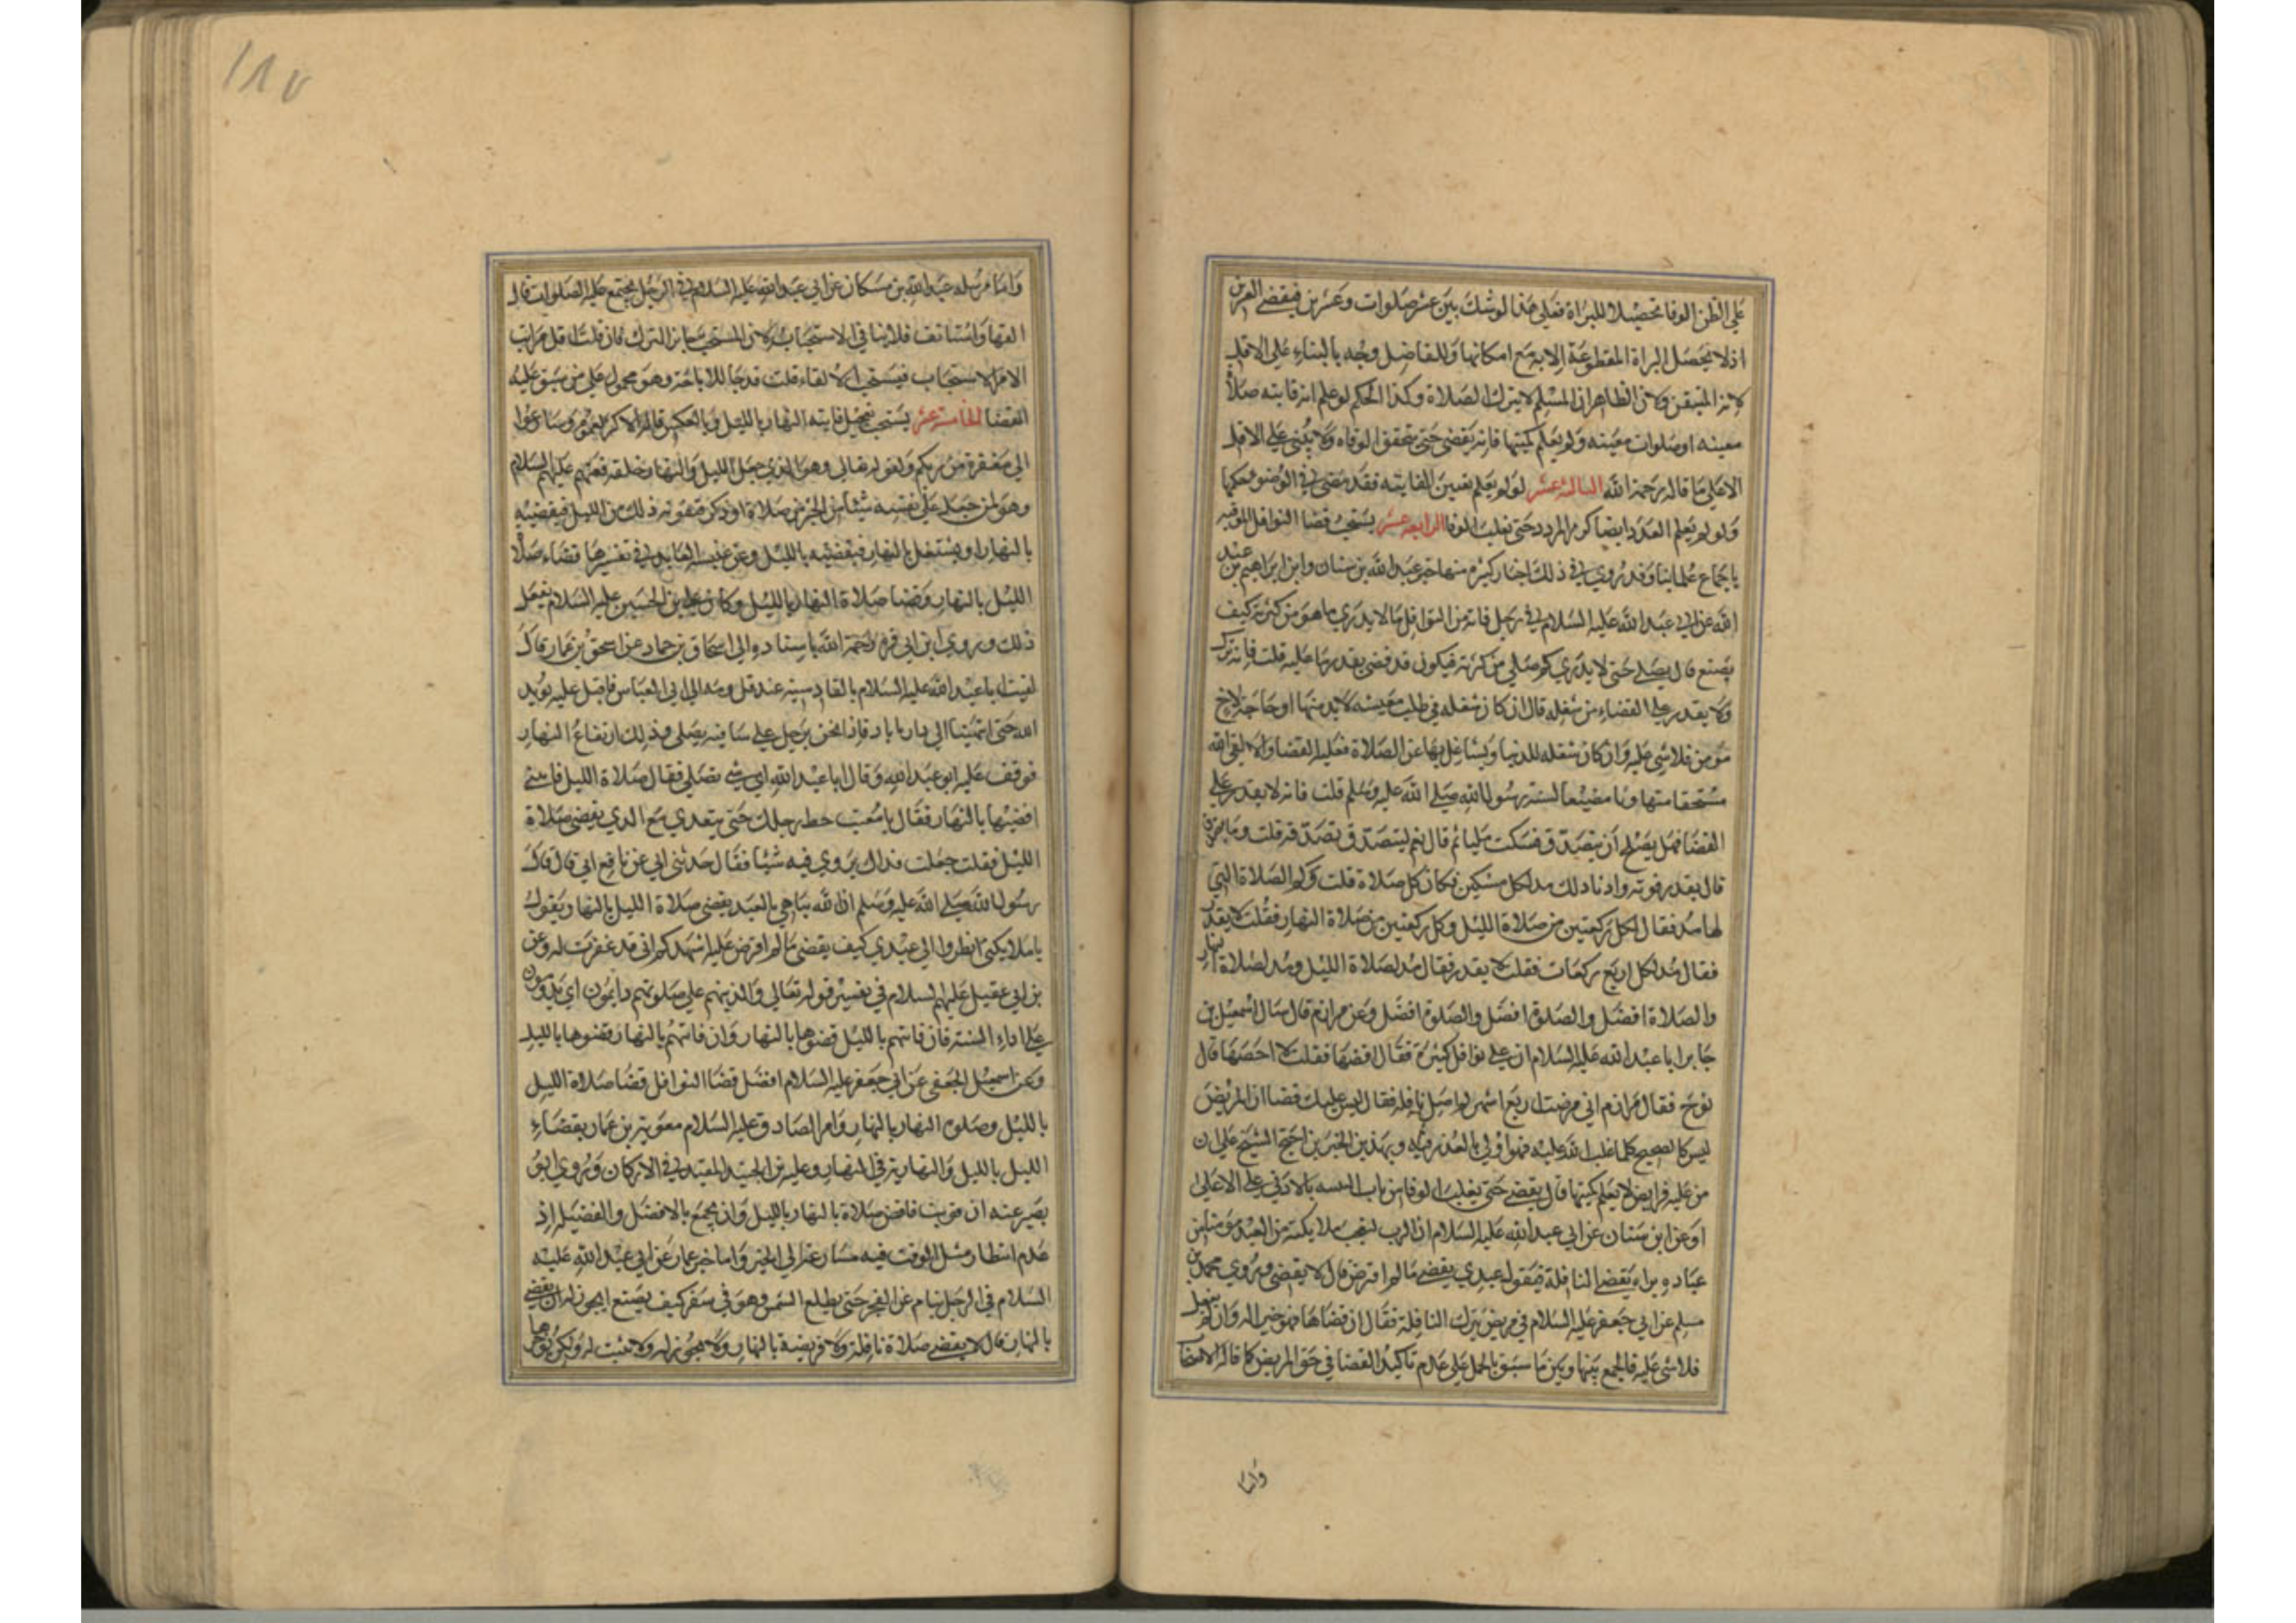 على الظن الوفا تحصيلا للبراة فعلى هذا لو شك بين عشر صلوات وعشرين فيقضي العشرين
اذ لا يحصل البراة المقطوعة الا به مع امكانها وللفاضل وجه بالبناء على الاقل
لانه المتيقن ولان الظاهر ان المسلم لا يترك الصلاة وكذا الحكم لو علم انه فايته صلاة
معينه او صلوات معينه ولم يعلم كميتها فانه يقضي حتى يتحقق الوفاه ولا يبني على الاقل
الا على ما قاله رحمه الله الثالثة عشر لو لم يعلم تعيين الفايته فقد مضى في الوضوء حكمها
ولو لم يعلم العدد ايضا كرر المردد حتى يغلب الوفا الرابعه عشر يستحب قضا النوافل الموقته
باجماع علماينا وقد روي في ذلك اخبار كثيره منها خبر عبد الله بن سنان وابن ابراهيم بن عبد
الله عن ابي عبد الله عليه السلام في رجل فاته من النوافل ما لا يدري ما هو من كثرته كيف
يصنع قال يصلي حتى لا يدري كم صلى من كثرته فيكون قد قضى بقدر ما عليه قلت فانه ترك
ولا يقدر على القضاء من شغله قال ان كان شغله في طلب معيشه لا بد منها او حاجة لاخ
مؤمن فلا شي عليه وان كان شغله للدنيا وتشاغل بها عن الصلاة فعليه القضا والا لقى الله
مستخفا متهاونا مضيعا لسنة رسول الله صلى الله عليه وسلم قلت فانه لا يقدر على
القضا فهل يصلح ان يتصدق فسكت مليا ثم قال نعم ليتصدق بصدقه قلت وما يتصدق
قال بقدر قوته وادنا ذلك مد لكل مسكين مكان كل صلاة قلت وكم الصلاة التي
لها مد فقال لكل ركعتين من صلاة الليل وكل ركعتين من صلاة النهار فقلت لا يقدر
فقال مد لكل اربع ركعات فقلت لا يقدر فقال مد لصلاة الليل ومد لصلاة النهار
والصلاة افضل والصلوة افضل والصلوة افضل وعن مرازم قال سال اسمعيل بن
جابر ابا عبد الله عليه السلام ان علي نوافل كثيرة فقال اقضها فقلت لا احصها قال
توخ فقال مرازم اني مرضت اربع اشهر لم اصل نافله فقال ليس عليك قضا ان المريض
ليس كالصحيح كلما غلب الله عليه فهو اولى بالعذر فيه وبهذين الخبرين احتج الشيخ على ان
من عليه فرايض لا يعلم كميتها قال يقضي حتى يغلب الوفا من باب التنبيه بالادنى على الاعلى
او عن ابن سنان عن ابي عبد الله عليه السلام ان الرب ليعجب ملايكته من العبد من
عباده يراه يقضي النافلة فيقول عبدي يقضي ما لم افترض قال لا يقضي وروي محمد بن
مسلم عن ابي جعفر عليه السلام في مريض يترك النافلة فقال ان قضاها فهو خير له وان لم يفعل
فلا شي عليه فالجمع بينها وبين ما سبق بالحمل على عدم تاكيد القضا في حق المريض كما قاله الاصحاب
واما
١٨٧
واما مرسله عبد الله بن مسكان عن ابي عبد الله عليه السلام في الرجل يجتمع عليه الصلوات قال
القها واستانف فلا ينافي الاستحباب لان المستحب جايز الترك فان قلت اقل مراتب
الامر الاستحباب فيستحب الالقاء قلت قد جا للاباحة وهو محمول على من شق عليه
القضا الخامسة عشر يستحب تعجيل فايته النهار بالليل وبالعكس قاله الاكثر لعموم وسارعوا
الى مغفرة من ربكم ولقوله تعالى وهو الذي جعل الليل والنهار خلفة فعنهم عليهم السلام
وهو لمن جعل على نفسه شيئا من الخير من صلاة او ذكر فيفوته ذلك من الليل فيقضيه
بالنهار او يشتغل بالنهار فيقضيه بالليل وعن عنبسه العابد في تفسيرها قضاء صلاة
الليل بالنهار وقضا صلاة النهار بالليل وكان علي بن الحسين عليه السلام يفعل
ذلك وروي ابن ابي قره رحمه الله باسناده الى اسحاق بن حماد عن اسحق بن عمار قال
لقيت ابا عبد الله عليه السلام بالقادسيه عند قدومه الى ابي العباس فاقبل عليه يريد
الله حتى انتهينا الى دار ناباد فاذا نحن برجل على ساقيه يصلي وذلك ارتفاع النهار
فوقف عليه ابو عبد الله وقال ابا عبد الله اي شي تصلي فقال صلاة الليل فاتتني
اقضيتها بالنهار فقال يا معتب حط رحلك حتى نتغدي مع الذي يقضي صلاة
الليل فقلت جعلت فداك تروي فيه شيئا فقال حدثني ابي عن ابي قال قال
رسول الله صلى الله عليه وسلم ان الله يباهي بالعبد يقضي صلاة الليل بالنهار ويقول
يا ملايكتي انظروا الى عبدي كيف يقضي ما لم افترض عليه اشهدكم اني قد غفرت له وعن
بن ابي عقيل عليهم السلام في تفسير قوله تعالى والذين هم على صلوتهم دايمون اي يدومون
على اداء السنة فان فاتتهم بالليل قضوها بالنهار وان فاتتهم بالنهار قضوها بالليل
وعن اسمعيل الجعفي عن ابي جعفر عليه السلام افضل قضا النوافل قضا صلاة الليل
بالليل وصلوة النهار بالنهار وامر الصادق عليه السلام معوية بن عمار بقضاء
الليل بالليل والنهارية في النهار وعليه ابن الجنيد المفيد في الاركان وروي ابو
بصير عنه ان قويت فاقض صلاة بالنهار بالليل وان يجمع بالافضل والفضيلة اذ
عدم انتظار مثل الوقت فيه مسارعة الى الخير واما خبر عمار عن ابي عبد الله عليه
السلام في الرجل ينام عن الفجر حتى يطلع الشمس وهو في سفر كيف يصنع ايجوز له ان يقضي
بالنهار قال لا يقضي صلاة نافلة ولا فريضة بالنهار ولا يجوز له ولا يثبت له ولكن يؤخرها